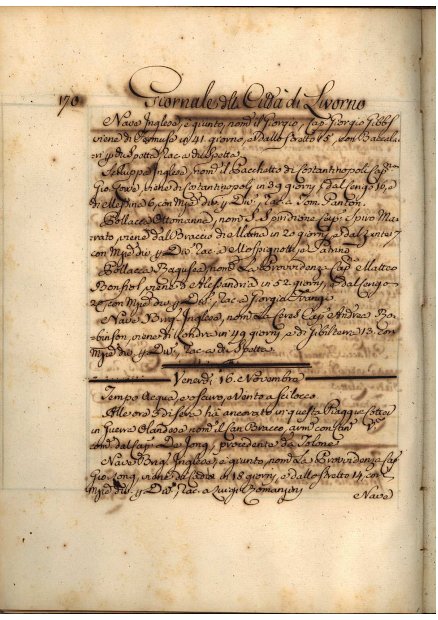 170. Giornale della Città di Livorno
Nave Inglese, è giunto, nom.ª il Giorgio, Cap. Giorgio Gibbs
viene di Fermuse in 41. giorno, e dallo Stretto 15, con Baccala
Sciluppa Inglese, nom.ª il Pacchetto di Costantinopoli Cap.
Gio: Gowe, viene di Costantinopoli in 39 giorni, dal Cengo 16, e
di Messina 6, con M. div. p. Div. rac. a Tom. Panton.
Pollacca Ottomanna, nom.ª S. Spiridione Cap. Spiro Ma
rato, viene dall Braccio di Maina in 20 giorni, e dal Zante 7
con M. div. p. Div. rac. a
Pollacca Ragusea, nom.ª La Providenza Cap. Matteo
Bonfiol, viene di Alessandria in 52. giorni, e dal Cengo
con M. div. p. Div. rac. a Giorgio
Nave Brig. Inglese, nom.ª La Ceres Cap. Andrea Ro
binson, viene di Londra in 49 giorni, e di Gibilterra 13. con
M. div. p. Div. rac. a di Spetta
Venerdì 16. Novembre
Tempo Acqua, e oscuro, e Vento a Scilocco
Alle ore 3 di sera há ancorato in questa Piagge sotto
in Guerra Olandese nom.ª il San Bracco,
com. dal Cap. De Jong, procedente da Tolone
Nave Brig. Inglese, è giunto, nom.ª La Providenza Cap.
Gio: Long, viene da Cadice in 18 giorni, e dallo Stretto 14. con
M. div. p. Div. rac. a Luigi
Nave